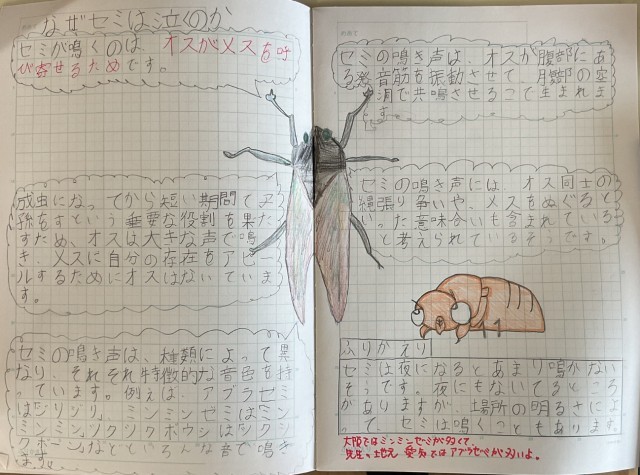 なぜセミは泣くのか
セミが鳴くのは、オスがメスを呼
び寄せるためです。
成虫になってから短い期間で子
孫をすという重要な役割を果た
すため、オスは大きな声で鳴
き、メスに自分の存在をアピー
ルするためにオスはないていま
す。
セミの鳴き声は、種類によって異
なり、それぞれ特徴的な音色を持
っています。例えば、アブラゼミ
はジリジリ、ミンミンゼミはミン
ミンミン、ツクツクボウシはツク
ツクボーシなどといろんな音で鳴き
ます。
セミの鳴き声は、オスが腹部にあ
る発音筋を振動させて、腹部の空
洞で共鳴させることで生まれま
す。
セミの鳴き声には、オス同士の
縄張り争いや、メスをめぐると
いった意味合いも含まれている
と考えられているそうです。
ふりかえり
セミは夜になるとあまり鳴かない
そうです。夜にもないてるところ
がありますが、場所の明るさによ
って、セミは鳴くこともあります。
大阪ではミンミンゼミが多くて、
先生の地元 愛知ではアブラゼミが多いよ。